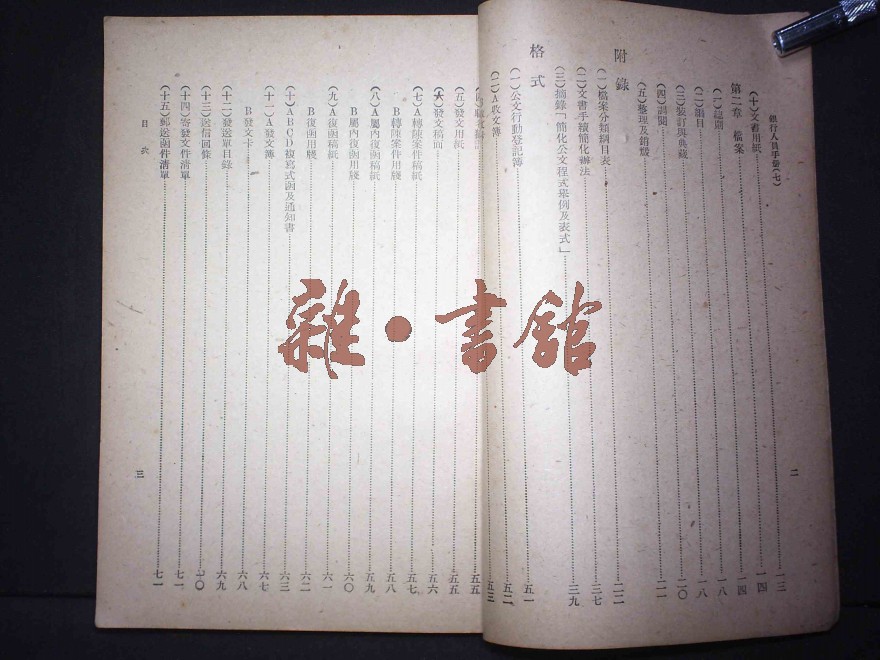 銀行人員手冊(七)
(十)文書用紙⋯⋯一三
第二章 檔案⋯⋯一四
(一)總則⋯⋯一四
(二)編目⋯⋯一八
(三)裝訂與典藏⋯⋯一八
(四)調閱⋯⋯二〇
(五)整理及銷燬⋯⋯二一
附錄
(一)檔案分類綱目表⋯⋯二二
(二)文書手續簡化辦法⋯⋯二七
(三)摘錄「簡化公文程式舉例及表式」⋯⋯三九
格式
(一)公文行動登記簿⋯⋯五一
(二)A收文簿⋯⋯五二
五三
二
五五
(五)發文用紙⋯⋯五五
(六)發文稿面⋯⋯五六
(七)A轉陳案件稿紙⋯⋯五七
B轉陳案件用牋⋯⋯五八
(八)A屬內復函稿紙⋯⋯五九
B屬內復函用牋⋯⋯六〇
(九)A復函稿紙⋯⋯六一
B復函用牋⋯⋯六二
(十)ABCD複寫式函及通知書⋯⋯六三
(十一)A發文簿⋯⋯六七
B發文卡⋯⋯六八
(十二)發送單目錄⋯⋯六九
(十三)送信回條⋯⋯七〇
(十四)寄發文件清單⋯⋯七一
(十五)郵送函件清單⋯⋯七一
目次
三
雜·書館